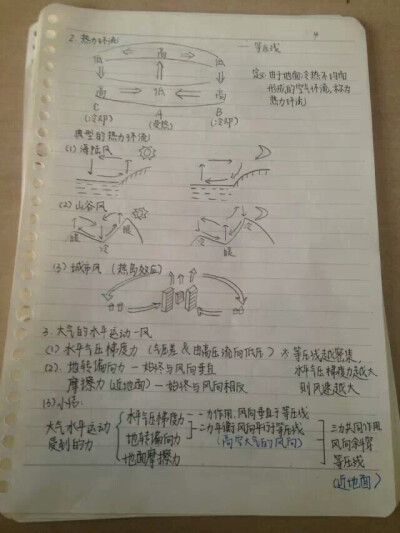 2. 热力环流
— 等压线
低 ⇐ 高 ⇒ 低
定义: 由于地面冷热不均而
形成的空气环流, 称为
热力环流
高 ⇒ 低 ⇐ 高
C A B
(冷却) (受热) (冷却)
典型的热力环流
(1) 海陆风
(2) 山谷风
暖 冷 暖
冷 暖 冷
(3) 城市风 (热岛效应)
3. 大气的水平运动—风
(1) 水平气压梯度力 (气压差 & 由高压流向低压) ※ 等压线越密集
(2) 地转偏向力 — 始终与风向垂直 水平气压梯度力越大
摩擦力 (近地面) — 始终与风向相反 则风速越大
(3) 小结
水平气压梯度力 — 一力作用, 风向垂直于等压线
大气水平运动 地转偏向力 二力平衡 风向平行等压线 三力共同作用
受到的力 (高空大气的风向) 风向斜穿
地面摩擦力 等压线
(近地面)